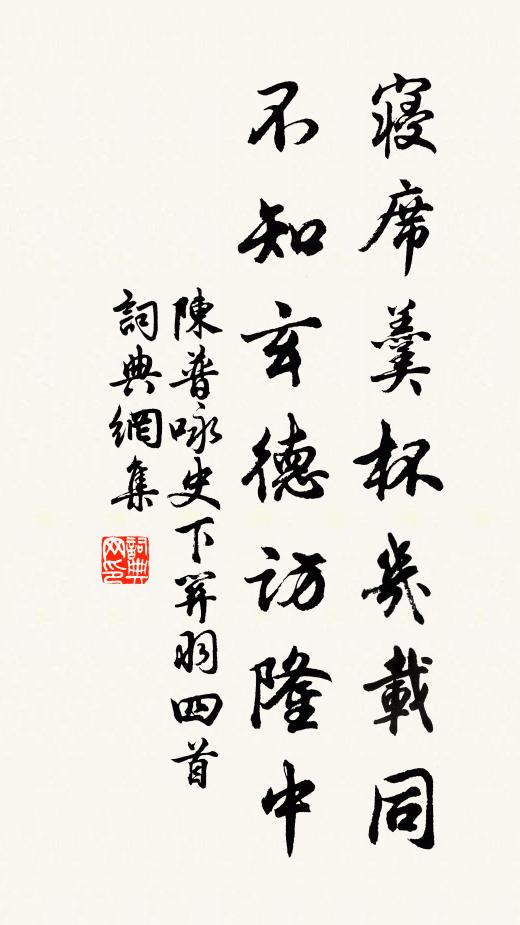 寢席羹杯幾載同
不知玄德訪隆中
陳普咏史下關羽四首
詞典網集
詞典
网印